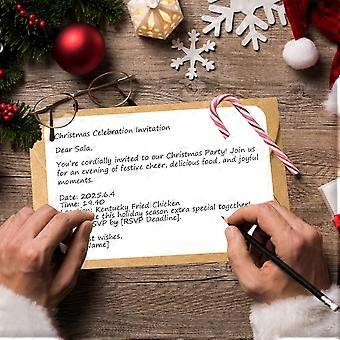 Christmas Celebration Invitation
Dear Sala,
You're cordially invited to our Christmas Party! Join us
for an evening of festive cheer, delicious food, and joyful
moments.
Date: 2025.6.4
Time: 19.40
Kentucky Fried Chicken
this holiday season extra special together!
by [RSVP Deadline].
wishes,